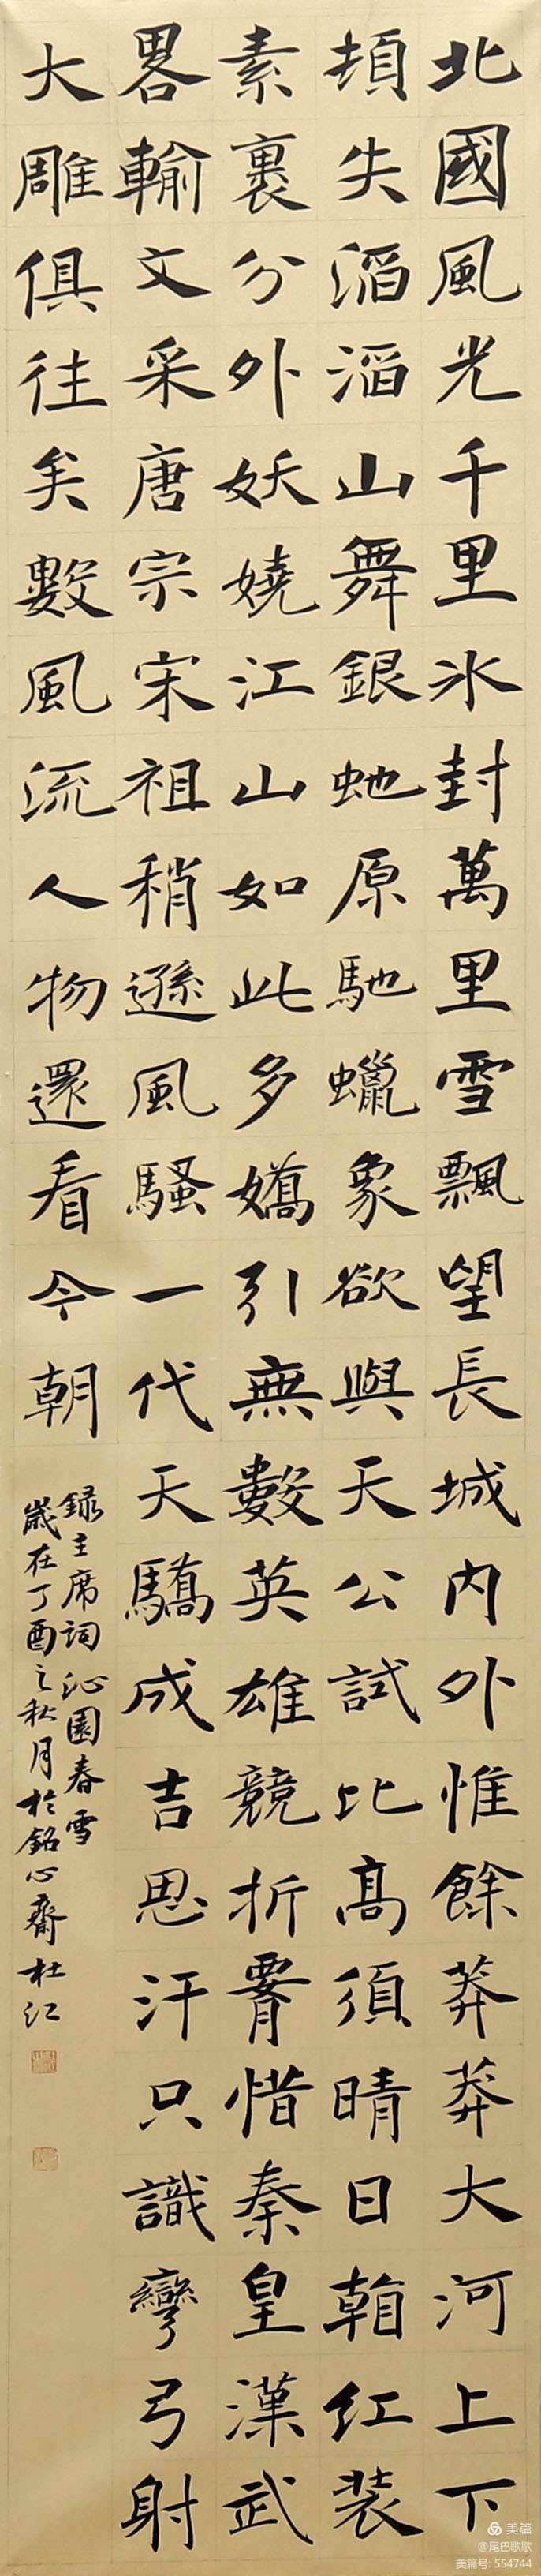 北國風光千里冰封萬里雪飄望長城内外惟餘莽莽大河上下
頓失滔滔山舞銀虵原馳蠟象欲與天公試比高須晴日䀍紅装
素裹分外妖嬈江山如此多嬌引無數英雄競折腰惜秦皇漢武
畧輸文采唐宗宋祖稍遜風騷一代天驕成吉思汗只識彎弓射
大雕俱往矣數風流人物還看今朝
録主席詞沁園春雪
歲在丁酉之秋月於銘心齋杜江
美篇
@尾巴歌歌
美篇号: 554744